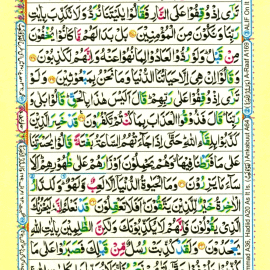 تَرٰٓى اِذْ وُقِفُوْا عَلَى النَّارِ فَقَالُوْا يٰلَيْتَنَا نُرَدُّ وَلَا نُكَذِّبَ بِاٰيٰتِ
رَبِّنَا وَنَكُوْنَ مِنَ الْمُؤْمِنِيْنَ بَلْ بَدَا لَهُمْ مَّا كَانُوْا يُخْفُوْنَ
مِنْ قَبْلُ وَلَوْ رُدُّوْا لَعَادُوْا لِمَا نُهُوْا عَنْهُ وَاِنَّهُمْ لَكٰذِبُوْنَ
وَقَالُوْٓا اِنْ هِيَ اِلَّا حَيَاتُنَا الدُّنْيَا وَمَا نَحْنُ بِمَبْعُوْثِيْنَ وَلَوْ
تَرٰٓى اِذْ وُقِفُوْا عَلٰى رَبِّهِمْ قَالَ اَلَيْسَ هٰذَا بِالْحَقِّ قَالُوْا بَلٰى وَ
رَبِّنَا قَالَ فَذُوْقُوا الْعَذَابَ بِمَا كُنْتُمْ تَكْفُرُوْنَ قَدْ خَسِرَ الَّذِيْنَ
كَذَّبُوْا بِلِقَآءِ اللّٰهِ حَتّٰٓى اِذَا جَآءَتْهُمُ السَّاعَةُ بَغْتَةً قَالُوْا يٰحَسْرَتَنَا
عَلٰى مَا فَرَّطْنَا فِيْهَا وَهُمْ يَحْمِلُوْنَ اَوْزَارَهُمْ عَلٰى ظُهُوْرِهِمْ اَلَا
سَآءَ مَا يَزِرُوْنَ وَمَا الْحَيٰوةُ الدُّنْيَآ اِلَّا لَعِبٌ وَّلَهْوٌ وَلَلدَّارُ
الْاٰخِرَةُ خَيْرٌ لِّلَّذِيْنَ يَتَّقُوْنَ اَفَلَا تَعْقِلُوْنَ قَدْ نَعْلَمُ اِنَّهٗ لَيَحْزُنُكَ
الَّذِيْ يَقُوْلُوْنَ فَاِنَّهُمْ لَا يُكَذِّبُوْنَكَ وَلٰكِنَّ الظّٰلِمِيْنَ بِاٰيٰتِ اللّٰهِ
يَجْحَدُوْنَ وَلَقَدْ كُذِّبَتْ رُسُلٌ مِّنْ قَبْلِكَ فَصَبَرُوْا عَلٰى مَا
mmad A36, Hadiid A20 As It Is. Ankabuut A64 A-Raaf A169